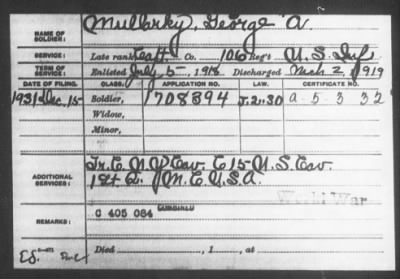 NAME OF SOLDIER: Mullarky, George A.
SERVICE: Late rank Capt. Co. 106 Reg't U.S. Inf.
TERM OF SERVICE: Enlisted July 5, 1918 Discharged Mch 2, 1919
DATE OF FILING. CLASS. APPLICATION NO. LAW. CERTIFICATE NO.
1931 Dec. 15 Soldier, 1708894 J.2-30 a 5 3 32
Widow,
Minor,
ADDITIONAL SERVICES: Tr. E. N.Y. Cav. E 15 U.S. Cav.
M.E. U.S.A.
World War
REMARKS: C 405 084
Died , 1 , at